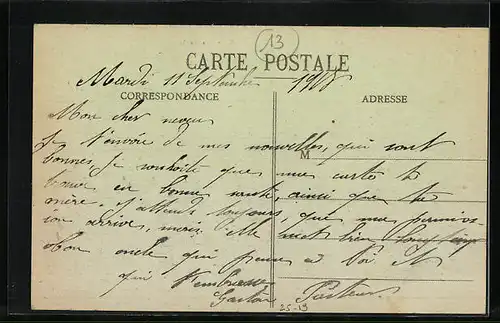 13
CARTE POSTALE
Mardi 11 Septembre 1918
CORRESPONDANCE
ADRESSE
Mon cher neveu
je t'envoie de mes nouvelles, qui sont
M
bonnes, je souhaite que ma carte te
trouve en bonne santé, ainsi que ta
mère. J'attends toujours, que ma permiss-
ion arrive, mais elle met bien longtemps
ton oncle qui pense a toi et
qui t'embrasse
Gaston
25-19